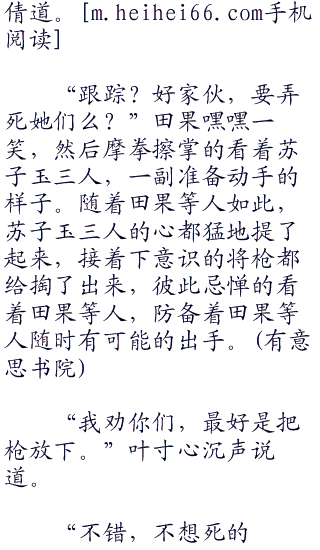 倩道。[m.heihei66.com手机
阅读]
“跟踪？好家伙，要弄
死她们么？”田果嘿嘿一
笑，然后摩拳擦掌的看着苏
子玉三人，一副准备动手的
样子。随着田果等人如此，
苏子玉三人的心都猛地提了
起来，接着下意识的将枪都
给掏了出来，彼此忌惮的看
着田果等人，防备着田果等
人随时有可能的出手。(有意
思书院)
“我劝你们，最好是把
枪放下。”叶寸心沉声说
道。
“不错，不想死的